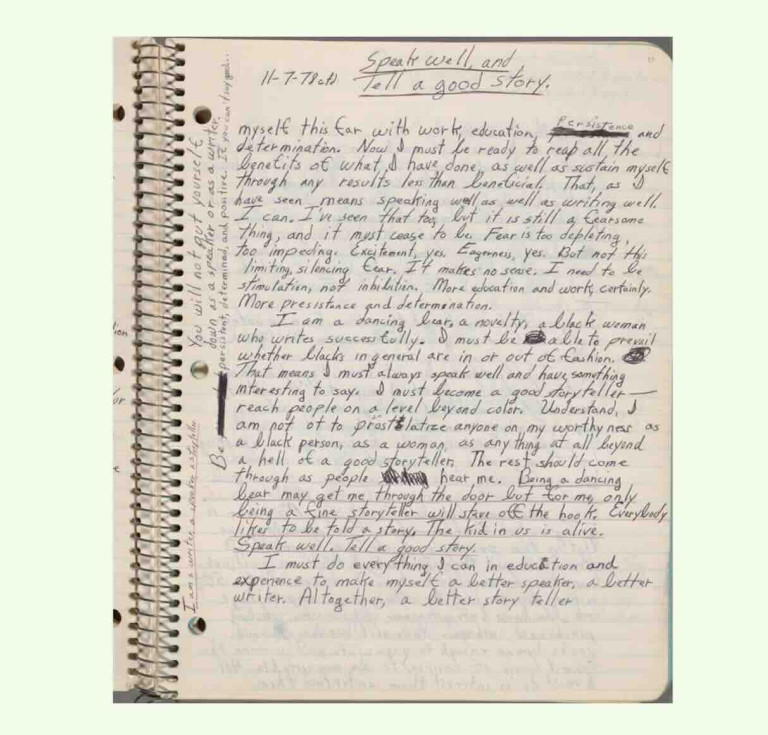 Speak well, and
11-7-78
Tell a good story.
myself this far with work, education, Persistence and
determination. Now I must be ready to reap all the
benefits of what I have done, as well as sustain myself
through any results less than beneficial. That, as I
have seen, means speaking well as well as writing well.
I can. I've seen that too, but it is still a fearsome
thing, and it must cease to be. Fear is too depleting,
too impeding. Excitement, yes. Eagerness, yes. But not this
limiting, silencing fear. It makes no sense. I need to be
stimulation, not inhibition. More education and work, certainly.
More presistance and determination.
I am a dancing bear, a novelty, a black woman
who writes successfully. I must be able to prevail
whether blacks in general are in or out of fashion.
That means I must always speak well and have something
interesting to say. I must become a good storyteller—
reach people on a level beyond color. Understand, I
am not ot to anyone on my worthyness as
a black person, as a woman, as any thing at all beyond
a hell of a good storyteller. The rest should come
through as people hear me. Being a dancing
bear may get me through the door but for me, only
being a fine storyteller will stave off the hook. Everybody
likes to be told a story. The kid in us is alive.
Speak well. Tell a good story.
I must do everything I can in education and
experience to make myself a better speaker, a better
writer. Altogether, a better story teller
You will not put yourself
down as a speaker or as a writer.
Be persistent, determined, and positive. If you can't say good...
I am a writer a speaker a storyteller